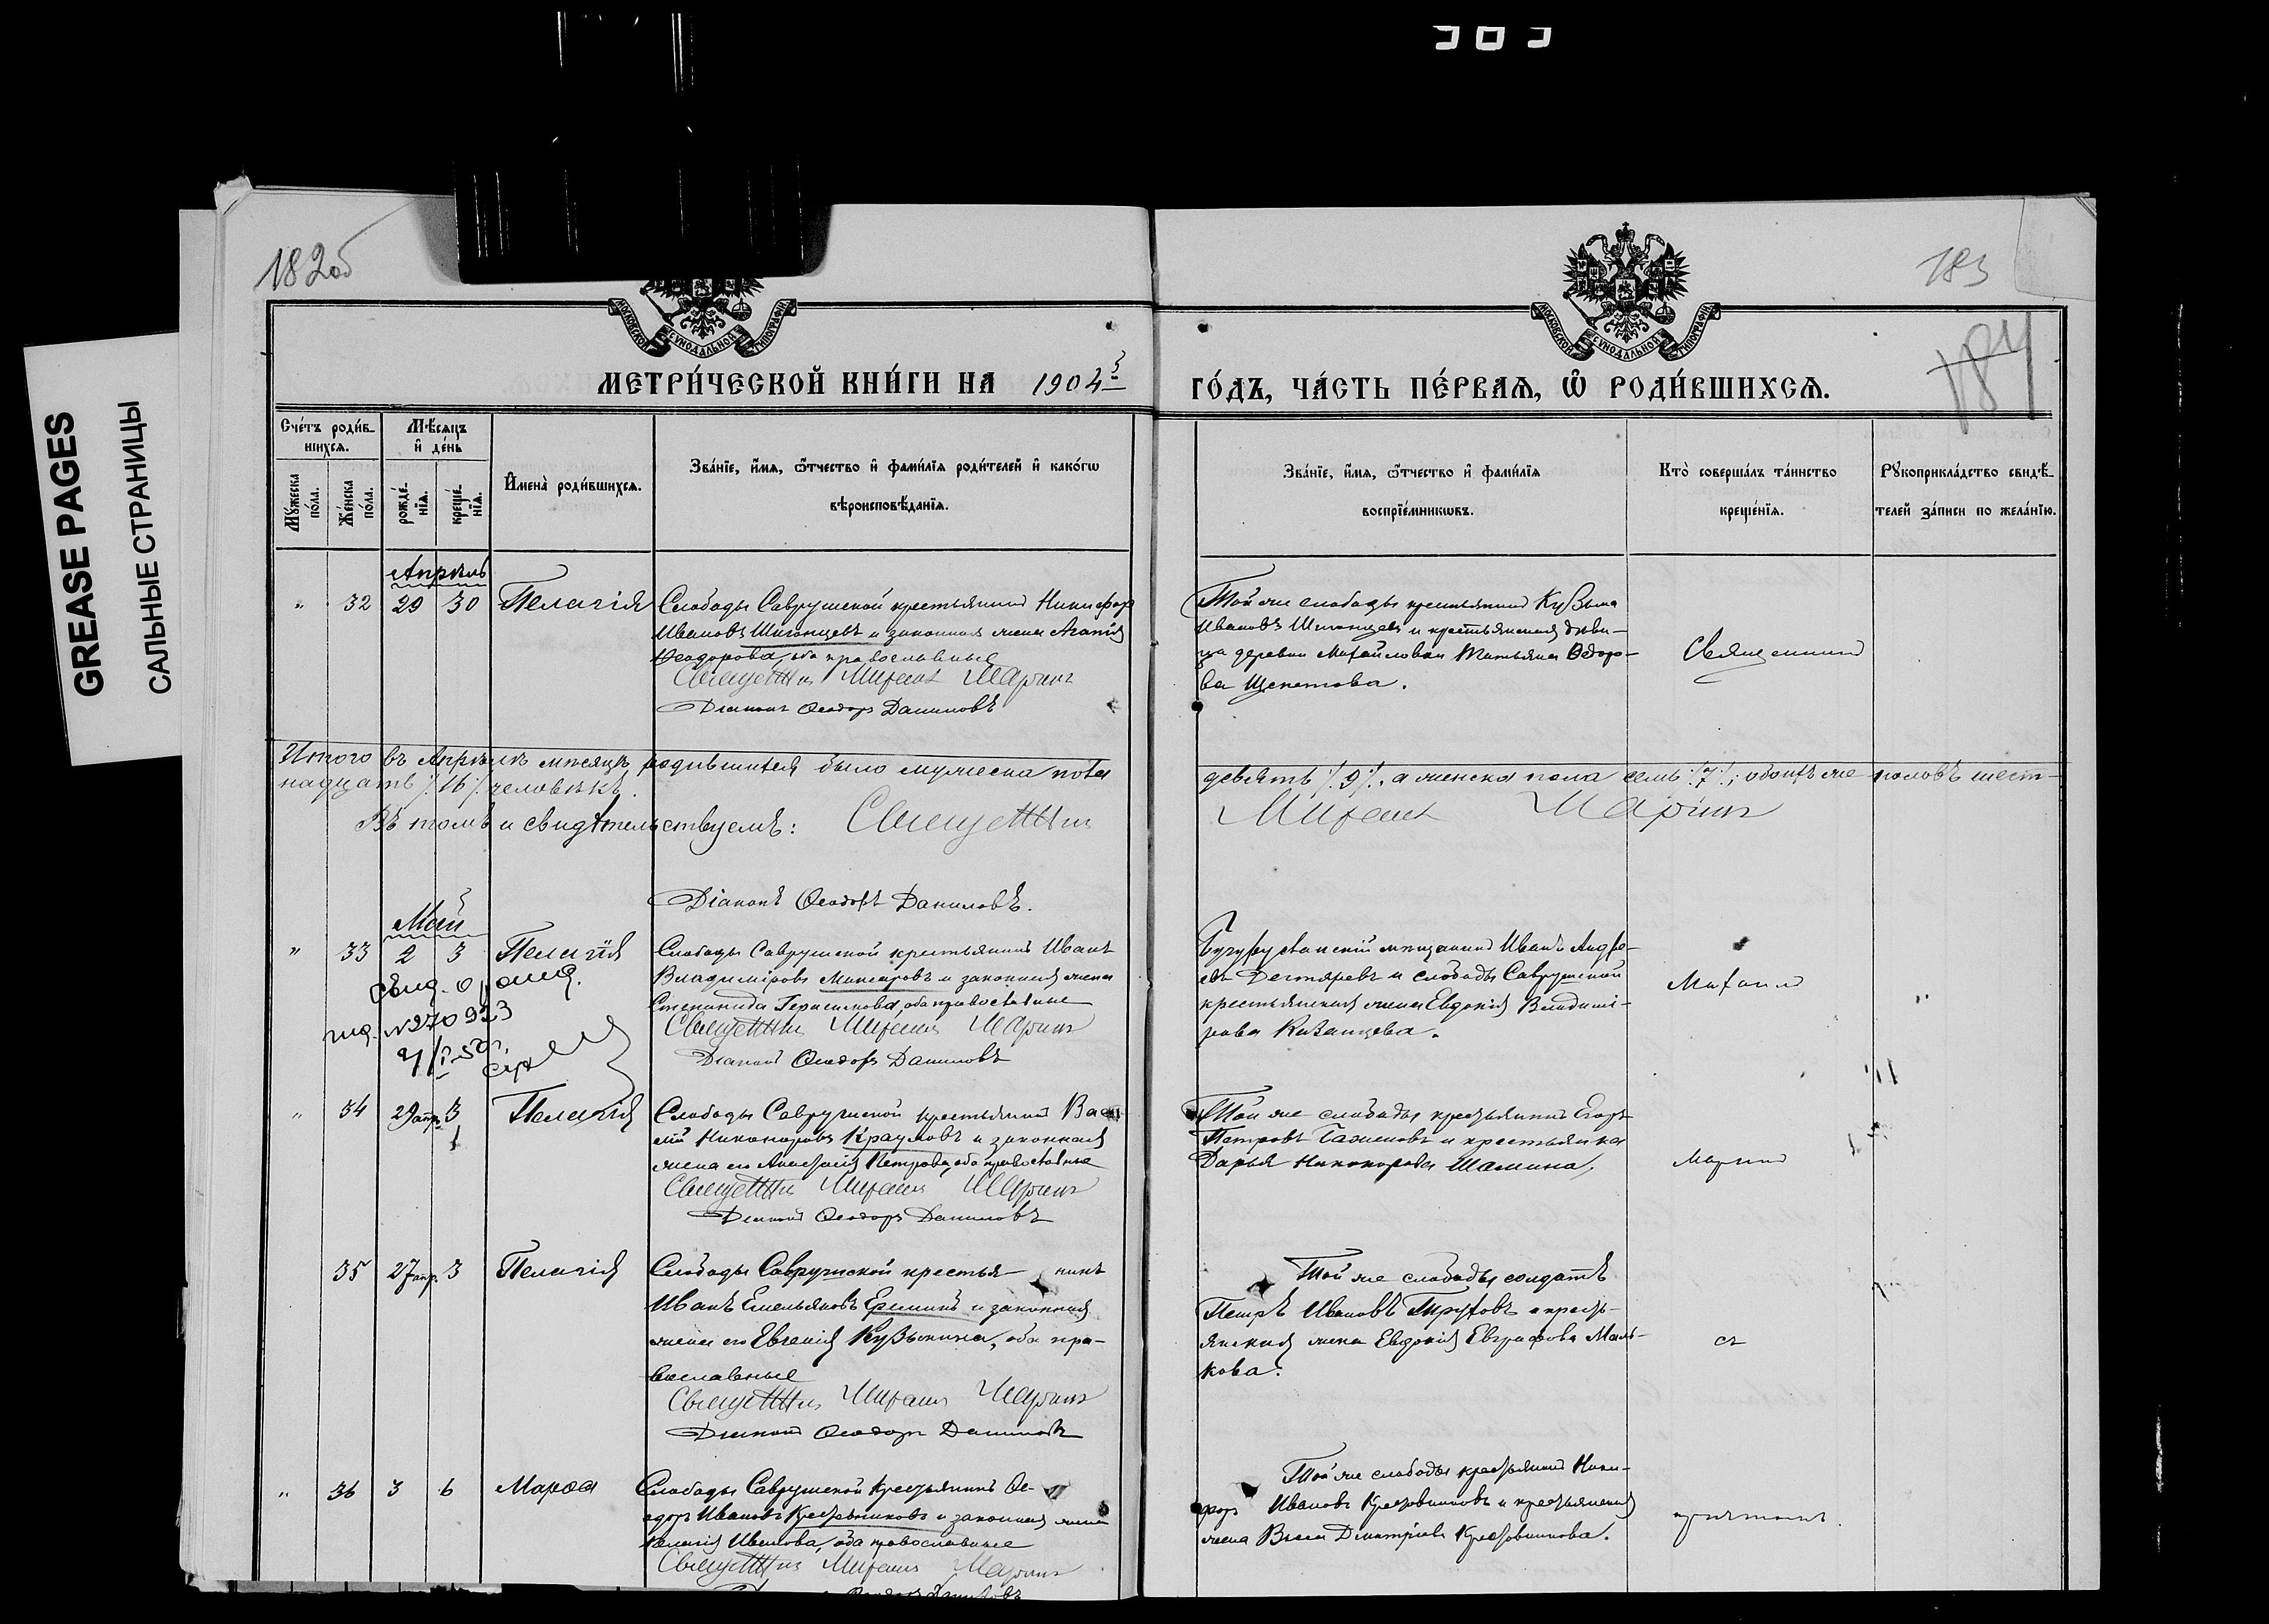 GREASE PAGES
САЛЬНЫЕ СТРАНИЦЫ
182об
183
184
МОСКОВСКОЙ СѴНОДАЛЬНОЙ ТИПОГРАФІИ
МОСКОВСКОЙ СѴНОДАЛЬНОЙ ТИПОГРАФІИ
МЕТРИ́ЧЕСКОЙ КНИ́ГИ НА 1904й
ГО́ДЪ, ЧА́СТЬ ПЕ́РВАЯ, Ѽ РОДИ́ВШИХСЯ.
Сче́тъ роди́в-
шихся.
Мꙋжеска
по́ла.
Же́нска
по́ла.
Мѣ́сяцъ
и҆ де́нь
рожде́-
нїя.
креще́-
нїя.
И҆мена̀ роди́вшихся.
Зва́нїе, и҆́мя, ѻ҆́тчество и҆ фами́лїя роди́телей и҆ како́гѡ
вѣроисповѣ́данїя.
Зва́нїе, и҆́мя, ѻ҆́тчество и҆ фами́лїя
воспрїе́мникѡвъ.
Кто̀ соверша́лъ та́инство
креще́нїя.
Рꙋкоприкла́дство свидѣ́-
телей за́писи по жела́нїю.
Апрѣль
" 32 29 30 Пелагія
Слободы Саврушской крестьянинъ Никифоръ
Ивановъ Шиганцевъ и законная жена Агапія
Ѳеодорова, оба православные
Священникъ Михаилъ Маринъ
Діаконъ Ѳеодоръ Даниловъ
Той же слободы крестьянинъ Кузьма
Ивановъ Шиганцевъ и крестьянская дѣви-
ца деревни Михайловки Татьяна Ѳедоро-
ва Щепетова.
Священникъ
Итого въ Апрѣлѣ мѣсяцѣ родившихся было мужеска пола девять /:9:/, а женска пола семь /:7:/; обоихъ же половъ шест-
надцать /:16:/ человѣкъ.
Въ томъ и свидѣтельствуемъ: Священникъ Михаилъ Маринъ
Діаконъ Ѳеодоръ Даниловъ.
Май
" 33 2 3 Пелагія
Слободы Саврушской крестьянинъ Иванъ
Владиміровъ и законная жена
Степанида Герасимова, оба православные
Священникъ Михаилъ Маринъ
Діаконъ Ѳеодоръ Даниловъ
Бугурусланскій мѣщанинъ Иванъ Андре-
евъ Дегтяревъ и слободы Саврушской
крестьянская жена Евдокія Владимі-
рова Казанцева.
Михаилъ
"
№270923
" 34 29апр. 3 Пелагія
Слободы Саврушской крестьянинъ Васи-
лій Никоноровъ и законная
жена его Анастасія Петрова, оба православные
Священникъ Михаилъ Маринъ
Діаконъ Ѳеодоръ Даниловъ
Той же слободы крестьянинъ Егоръ
Петровъ и крестьянка
Дарья Никонорова Шамина.
Маринъ
35 27апр. 3 Пелагія
Слободы Саврушской крестья- нинъ
Иванъ Емельяновъ Ереминъ и законная
жена его Евгенія Кузьмина, оба пра-
вославные
Священникъ Михаилъ Маринъ
Діаконъ Ѳеодоръ Даниловъ
Той же слободы солдатъ
Петръ Ивановъ Труховъ и кресть-
янская жена Евдокія Евграфова Маль-
кова.
съ
" 36 3 6 Марѳа
Слободы Саврушской крестьянинъ Ѳе-
одоръ Ивановъ Крестовниковъ и законная жена
Пелагія Иванова, оба православные
Священникъ Михаилъ Маринъ
Діаконъ Ѳеодоръ Даниловъ
Той же слободы крестьянинъ Ники-
форъ Ивановъ Крестовниковъ и крестьянская
жена Васса Димитріева Крестовникова.
причтомъ.